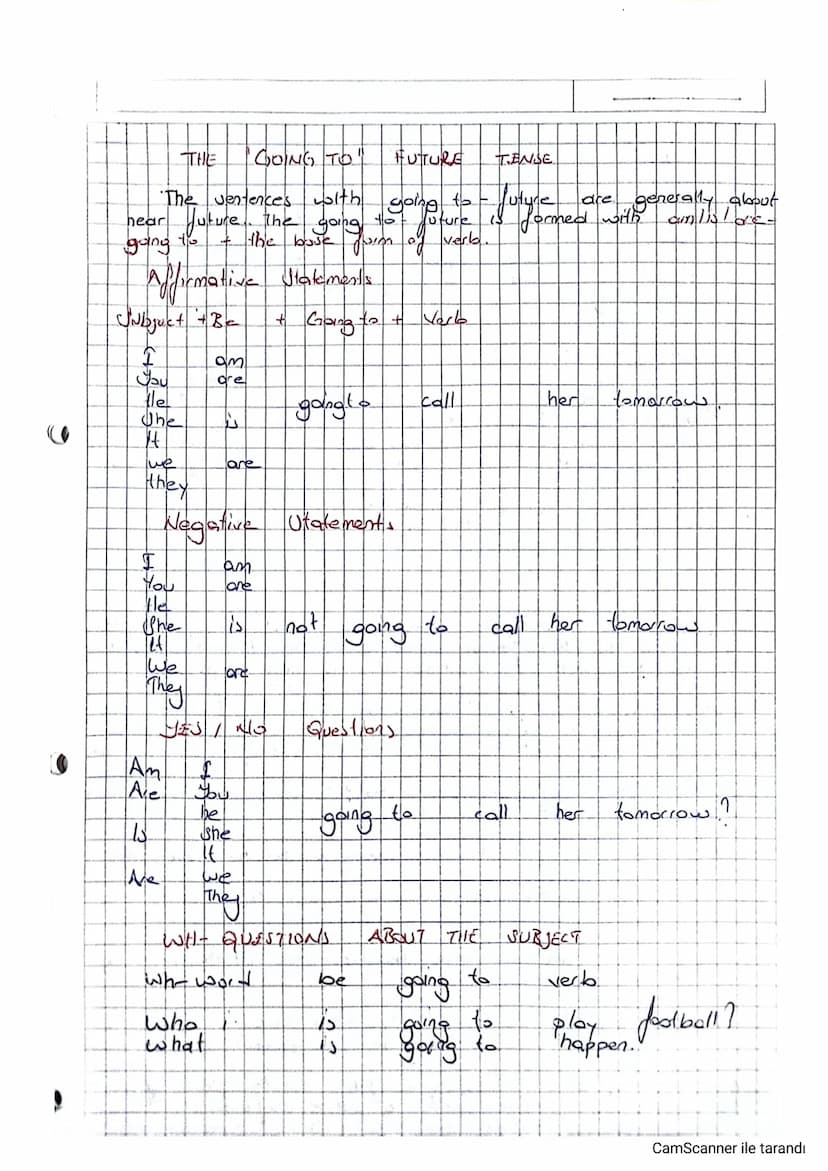 THE "GOING TO" FUTURE TENSE
The sentences with going to - future are generally about
near future. The going to - future is formed with am/is/are-
going to + the base form of verb.
Affirmative Statements
Subject + Be + Going to + Verb
I am
You are
He
She is going to call her tomorrow.
It
we are
they
Negative Statements
I am
You are
He
She is not going to call her tomorrow
It
We are
They
YES / NO Questions
Am I
Are You
he going to call her tomorrow?
Is She
It
Are We
They
WH- QUESTIONS ABOUT THE SUBJECT
Wh-word be going to verb
Who is going to play football?
What is going to happen.
CamScanner ile tarandı